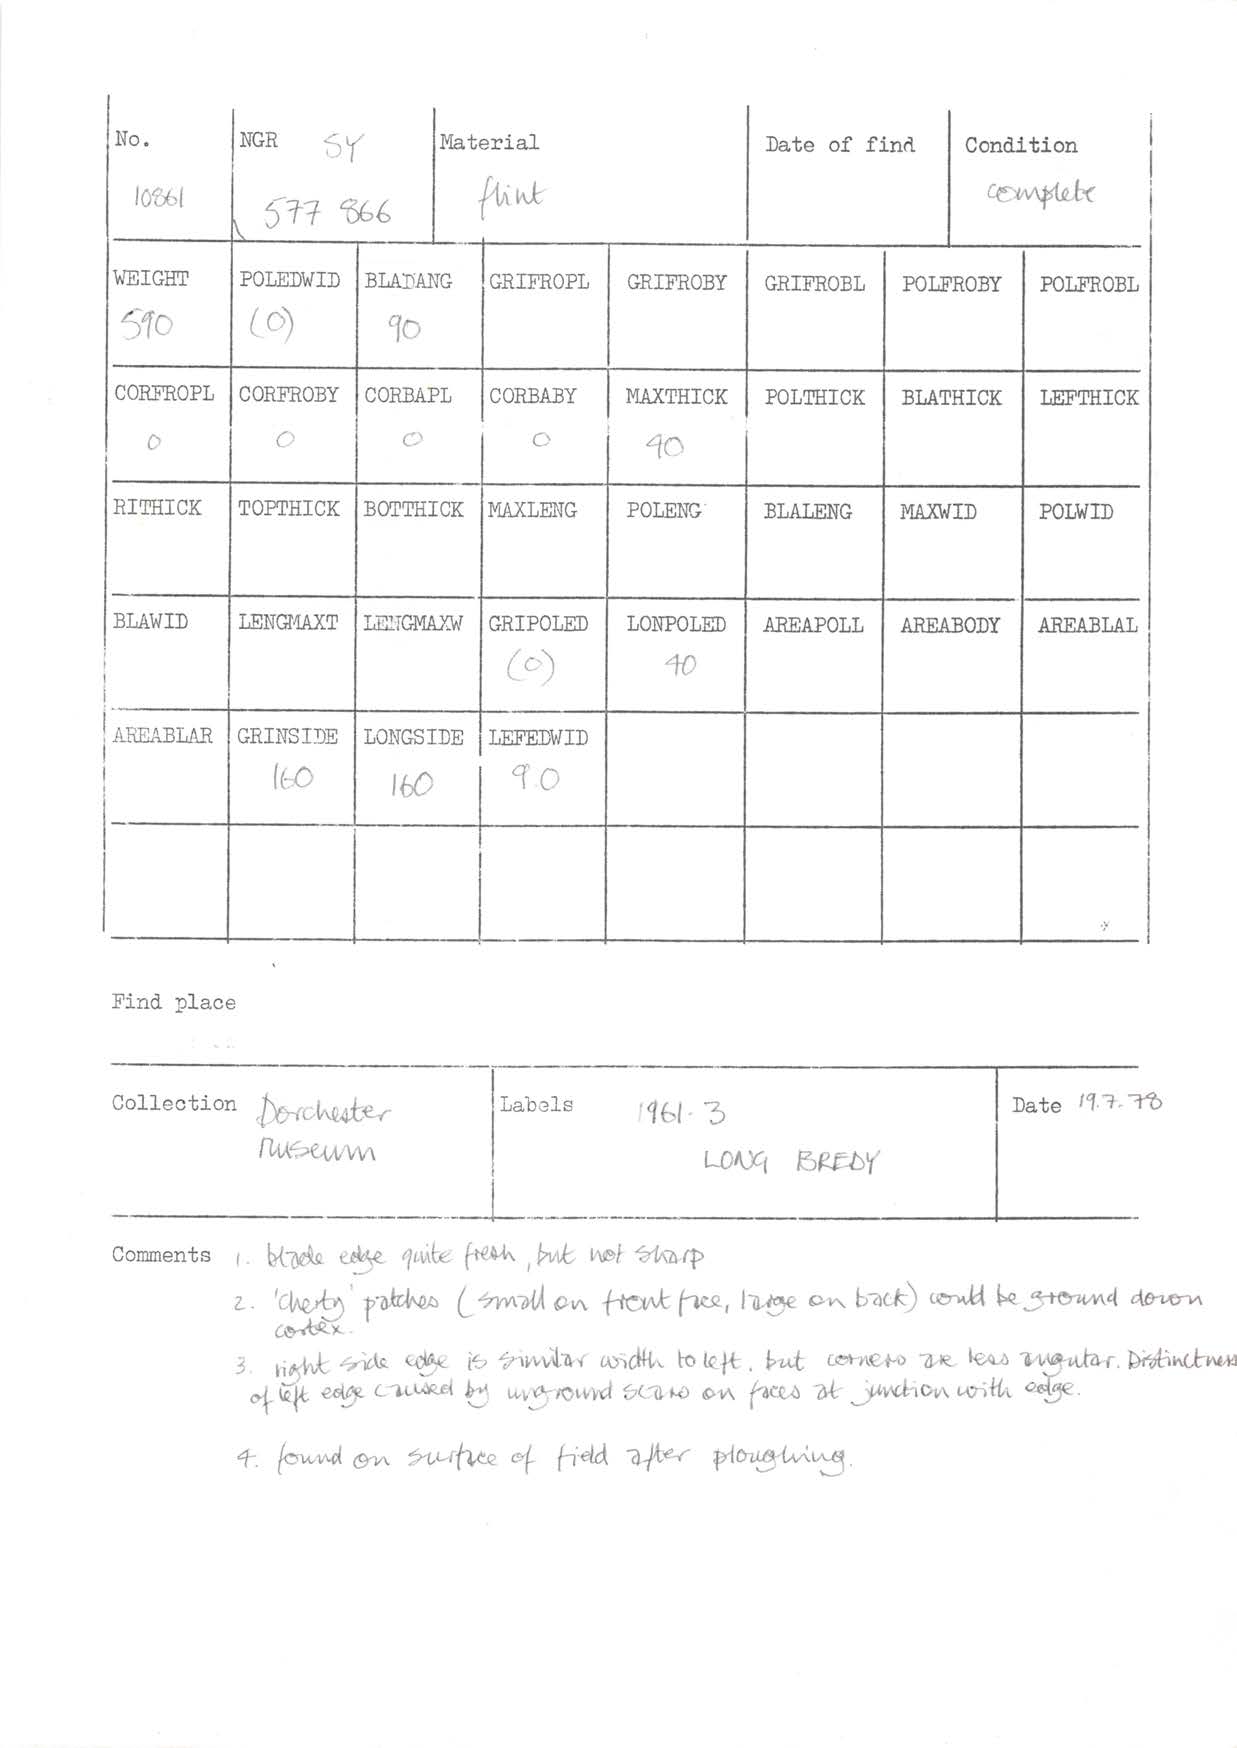 No. NGR SY Material Date of find Condition
10861 577 866 flint complete
WEIGHT POLEDWID BLADANG GRIFROPL GRIFROBY GRIFROBL POLFROBY POLFROBL
590 (0) 90
CORFROPL CORFROBY CORBAPL CORBABY MAXTHICK POLTHICK BLATHICK LEFTHICK
0 0 0 0 40
RITHICK TOPTHICK BOTTHICK MAXLENG POLENG BLALENG MAXWID POLWID
BLAWID LENGMAXT LENGMAXW GRIPOLED LONPOLED AREAPOLL AREABODY AREABLAL
(0) 40
AREABLAR GRINSIDE LONGSIDE LEFEDWID
160 160 9.0
Find place
Collection Dorchester Labels 1961-3 Date 19.7.78
Museum LONG BREDY
Comments 1. blade edge quite fresh, but not sharp
2. 'cherty' patches (small on front face, large on back) could be ground down
cortex.
3. right side edge is similar width to left, but corners are less angular. Distinctness
of left edge caused by unground scars on faces at junction with edge.
4. found on surface of field after ploughing.